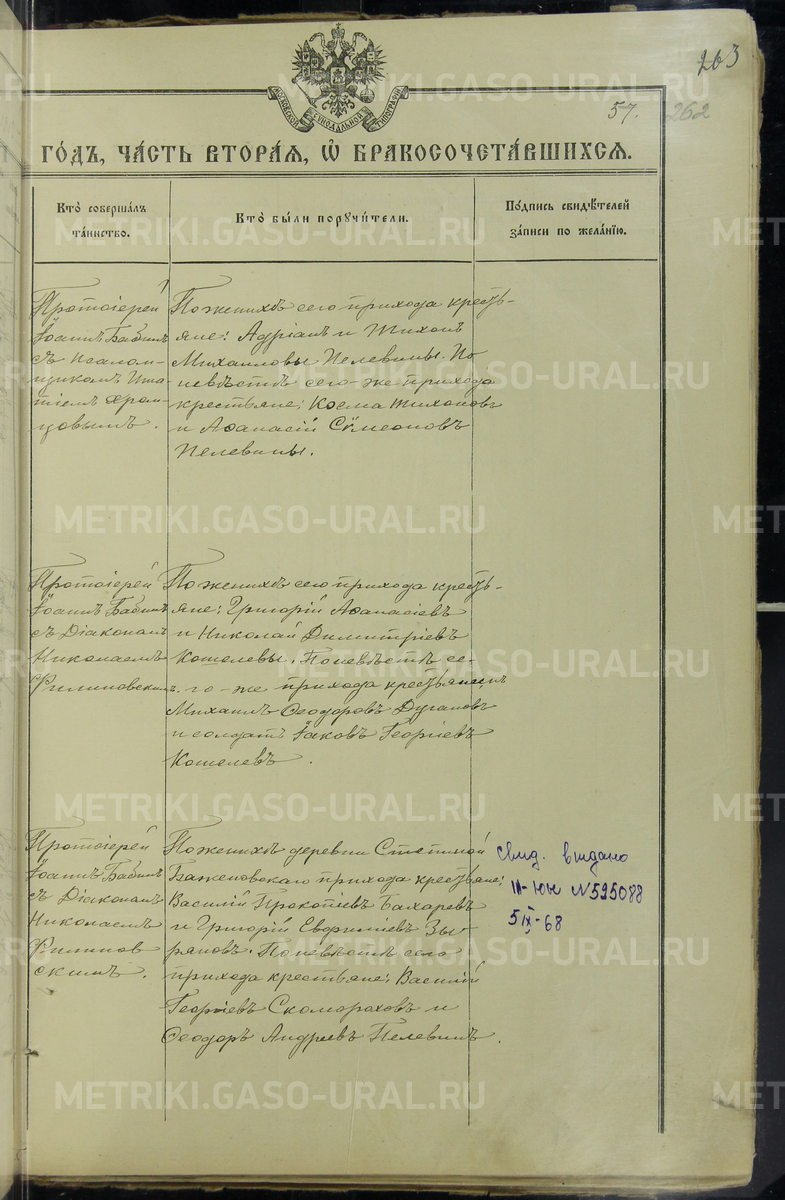 263
57. 262
МОСКОВСКОЙ СѴНОДАЛЬНОЙ ТИПОГРАФІИ
ГО́ДЪ, ЧА́СТЬ ВТОРА́Я, Ѽ БРАКОСОЧЕТА́ВШИХСЯ.
Кто̀ соверша́лъ
та́инство.
Кто̀ бы́ли порꙋчи́тели.
По́дпись свидѣ́телей
за́писи по жела́нїю.
Протоіерей
Іоаннъ Бабинъ
съ псалом-
щикомъ Игна-
тіемъ Хром-
цовымъ.
По женихѣ сего прихода кресть-
яне: Адріанъ и Тихонъ
Михаиловы Пелевины. По
невѣстѣ сего-же прихода
крестьяне: Косма Тихоновъ
и Аѳанасій Сѷмеоновъ
Пелевины.
Протоіерей
Іоаннъ Бабинъ
съ Діакономъ
Николаемъ
Филиновскимъ.
По женихѣ сего прихода кресть-
яне: Григорій Аѳанасіевъ
и Николай Димитріевъ
Кошелевы. По невѣстѣ се-
го-же прихода крестьянинъ
Михаилъ Ѳеодоровъ Дугановъ
и солдатъ Іаковъ Георгіевъ
Кошелевъ.
Протоіерей
Іоаннъ Бабинъ
съ Діакономъ
Николаемъ
Филинов
скимъ.
По женихѣ деревни Степиной
Баженовскаго прихода крестьяне:
Василій Прокопіевъ Бахаревъ
и Григорій Евфиміевъ Зы-
ряновъ. По невѣстѣ сего
прихода крестьяне: Василій
Георгіевъ Скомороховъ и
Ѳеодоръ Андреевъ Пелевинъ.
свид. выдано
III-ЮЮ N 595088
5/IX-68
METRIKI.GASO-URAL.RU